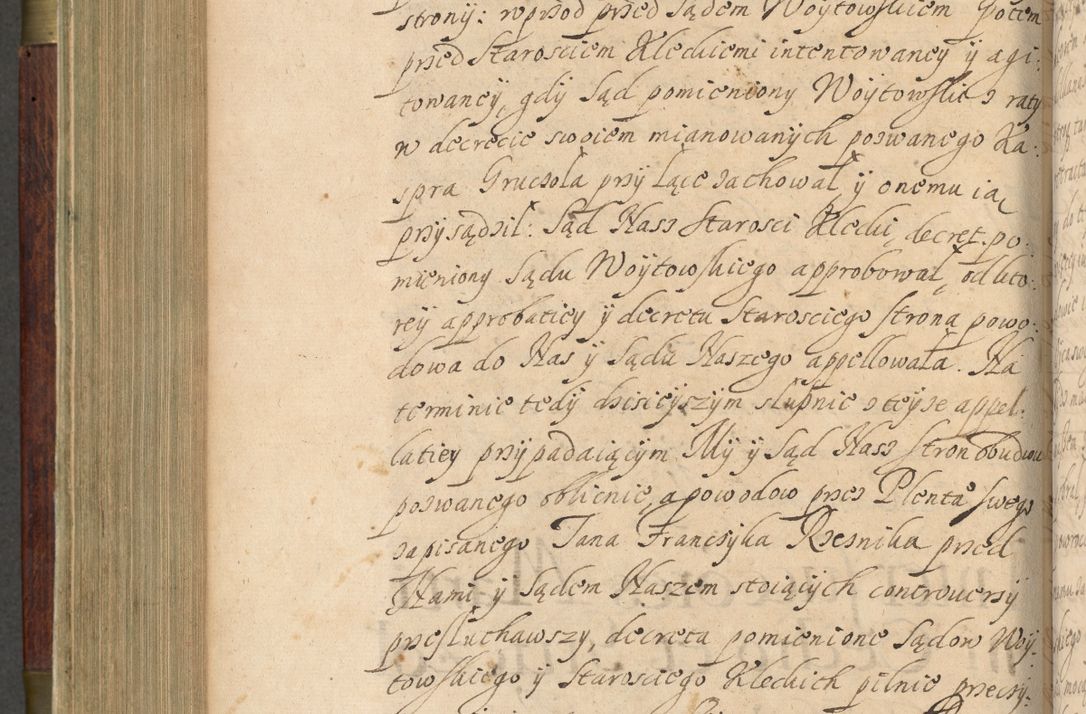 strony: wprzod przed Sądem Woytowskiem potem
przed Starosciem Kleckiemi intentowaney y agi-
towaney, gdy Sąd pomieniony Woytowskie z raty
w decrecie swoiem mianowanych pozwanego Ka-
spra Gruczoła przy łące zachował y onemu ią
przysądził: Sąd Nasz Starosci Klecki, decret po-
mieniony Sądu Woytowskiego approbował, od kto-
rey approbatiey y decretu Starosciego strona powo-
dowa do Nas y Sądu Naszego appellowała. Na
terminie tedy dzisieyszym słupnie z teyze appel-
latiey przypadaiącym My y Sąd Nasz Stron obudwu
pozwanego oblicnie, a powodow przez Plenta swego
zapisanego Jana Franciszka Rzesnika przed
Nami y Sądem Naszem stoiących controuersy
przesłuchawszy, decreta pomienione Sądow Woy-
towskiego y Starosciego Kleckich pilnie przeczy-